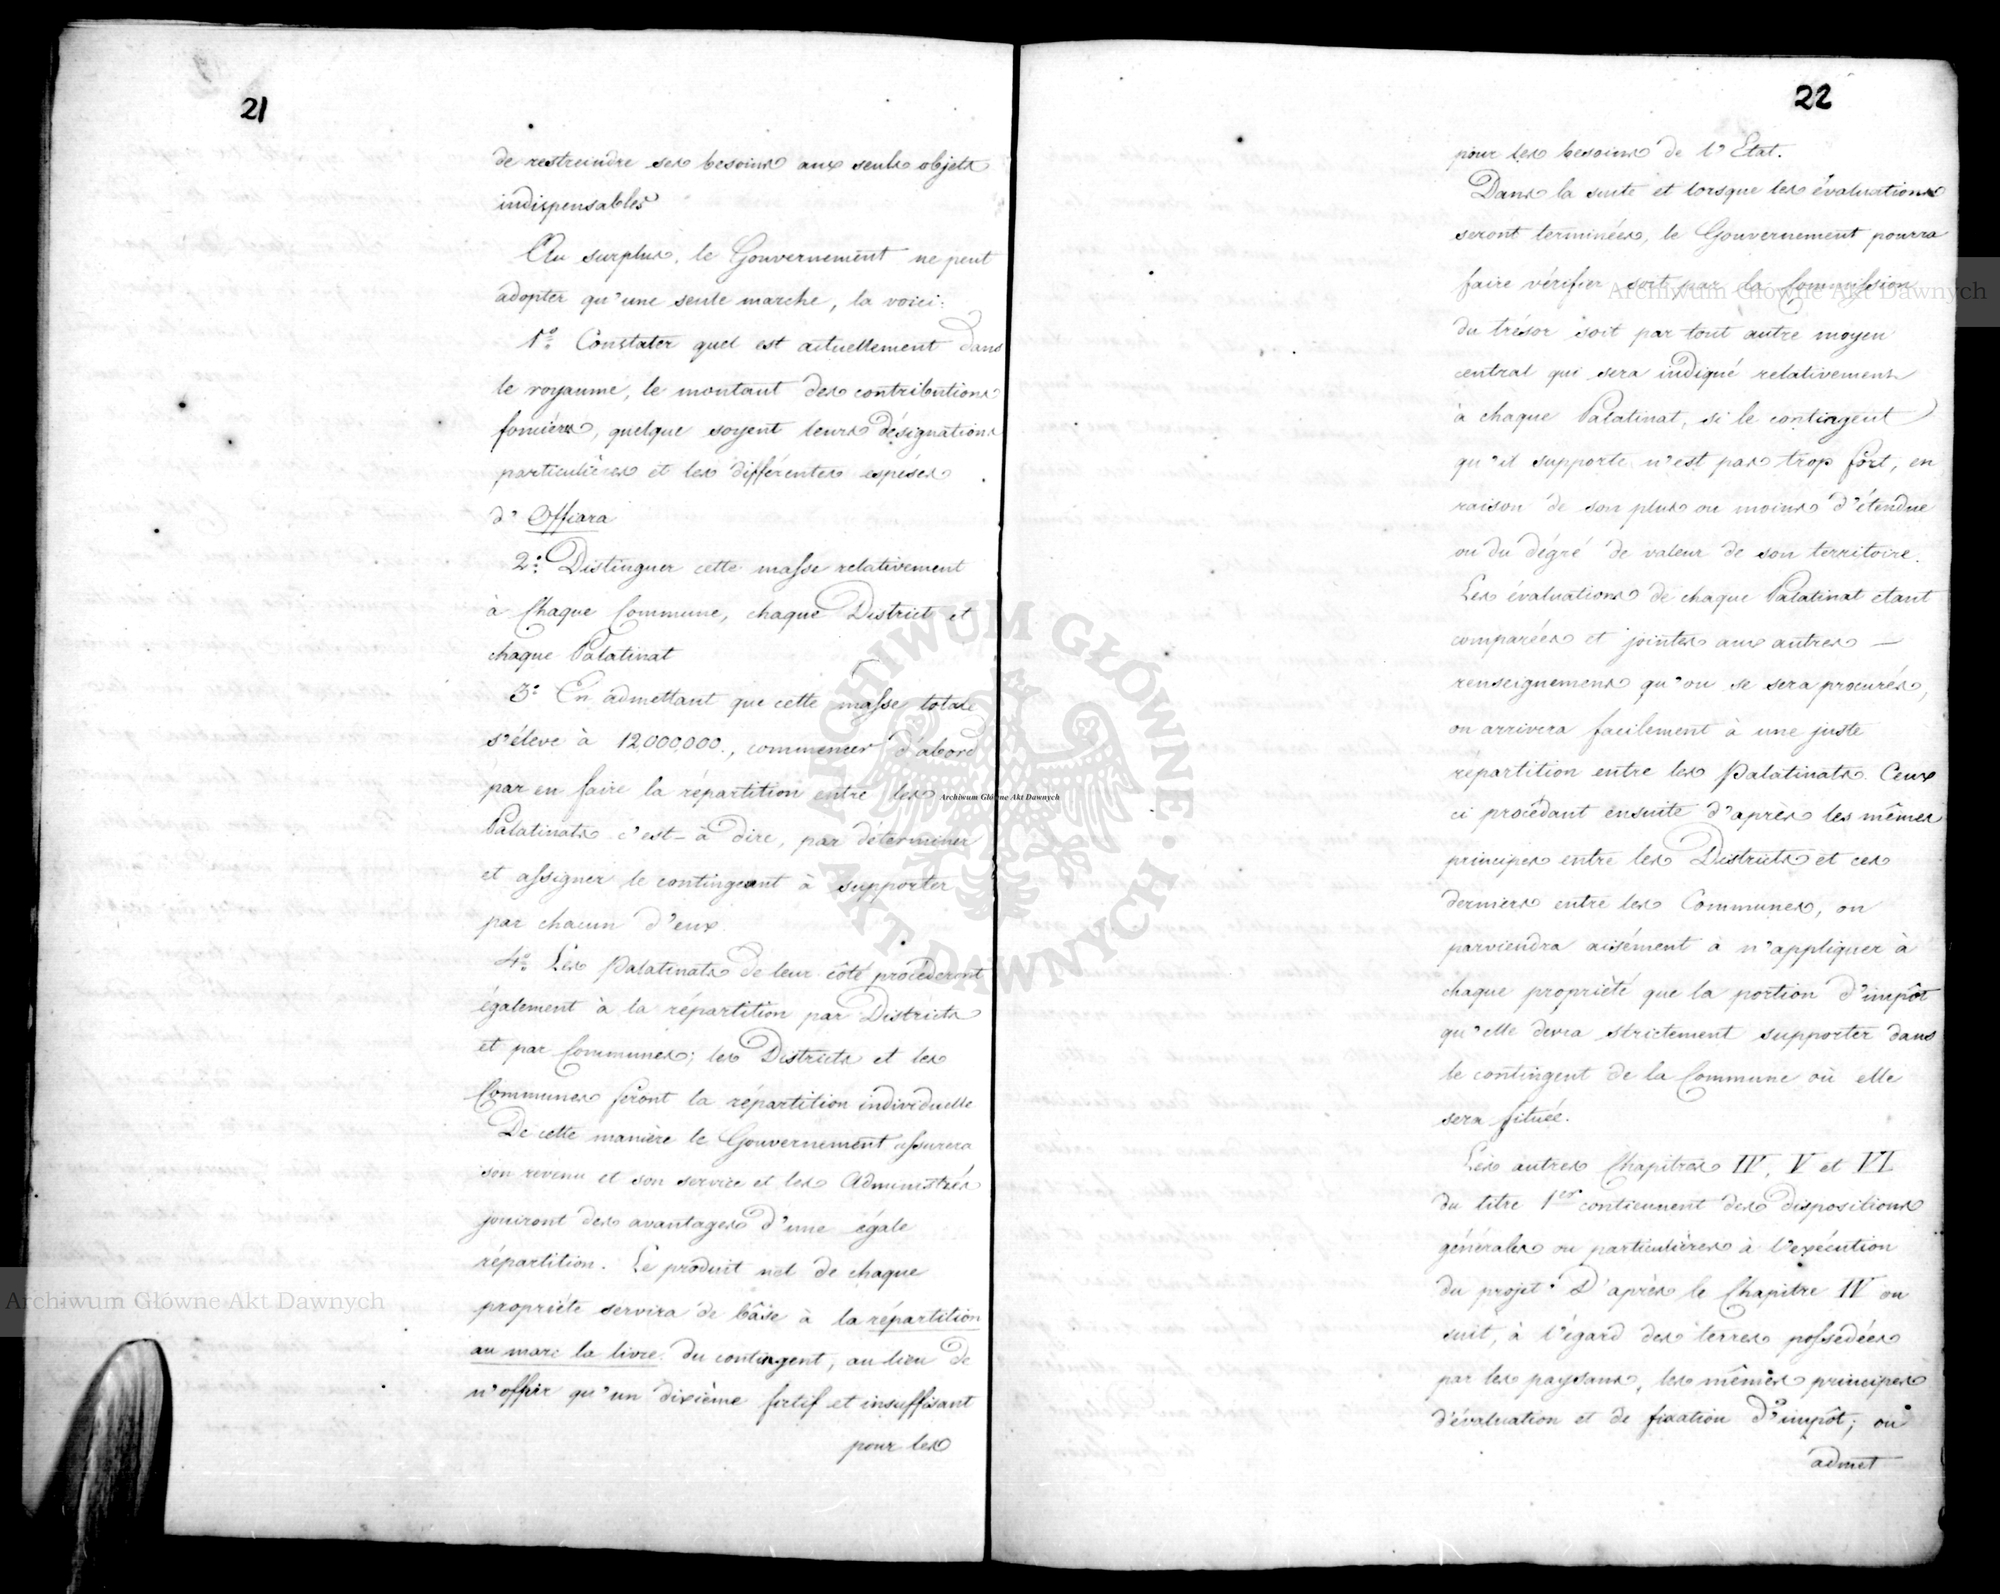 21
de restreindre ses besoins aux seuls objets
indispensables
Au surplus, le Gouvernement ne peut
adopter qu'une seule marche, la voici:
1º Constater quel est actuellement dans
le royaume, le montant des contributions
foncières, quelque soyent leurs désignations
particulières et les différentes espéses
d'Offiara
2º Distinguer cette masse relativement
à Chaque Commune, chaque District et
chaque Palatinat
3º En admettant que cette masse totale
s'éleve à 12000,000., commencer d'abord
par en faire la répartition entre les
Palatinats c'est-à dire, par déterminer
et assigner le contingeant à supporter
par chacun d'eux.
4º Les Palatinats de leur côté procéderont
également à la répartition par Districts
et par Communes; les Districts et les
Communes feront la répartition individuelle
De cette manière le Gouvernement assurera
son revenu et son service et les Administrés
jouiront des avantages d'une égale
répartition. Le produit net de chaque
propriéte servira de bâse à la répartition
au marc la livre du contingent, au lieu de
n'offrir qu'un dixième fictif et insuffisant
pour les
22
pour les besoins de l'Etat.
Dans la suite et lorsque les évaluations
seront terminées, le Gouvernement pourra
faire vérifier soit par la Commission
du trésor soit par tout autre moyen
central qui sera indiqué relativement
à chaque Palatinat, si le contingent
qu'il supporte n'est pas trop fort, en
raison de son plus ou moins d'étendue
ou du dégré de valeur de son territoire.
Les évaluations de chaque Palatinat etant
comparées et jointes aux autres –
renseignemens qu'on se sera procurés,
on arrivera facilement à une juste
répartition entre les Palatinats. Ceux
ci procédant ensuite d'après les mêmes
principes entre les Districts et ces
derniers entre les Communes, on
parviendra aisément à n'appliquer à
chaque propriété que la portion d'impôt
qu'elle devra strictement supporter dans
le contingent de la Commune où elle
sera située.
Les autres Chapitres IV, V et VI
du titre 1er contiennent des dispositions
générales ou particulières à l'exécution
du projet. D'après le Chapitre IV on
suit, à l'égard des terres possedées
par les paysans, les mêmes principes
d'évaluation et de fixation d'impôt; on
admet
Archiwum Główne Akt Dawnych
Archiwum Główne Akt Dawnych
Archiwum Główne Akt Dawnych
ARCHIWUM GŁÓWNE AKT DAWNYCH